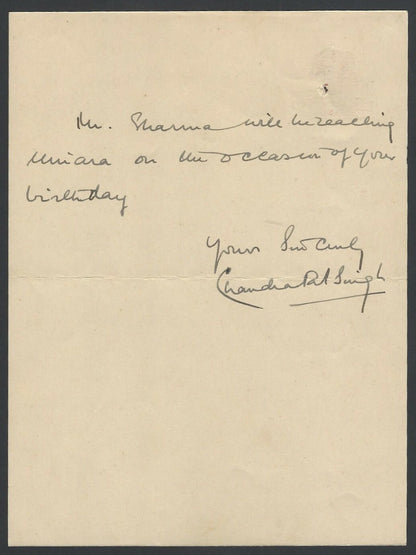 Mr. Sharma will be reaching
Uniara on the occasion of your
birthday
Yours Sincerely
Chandra Pal Singh